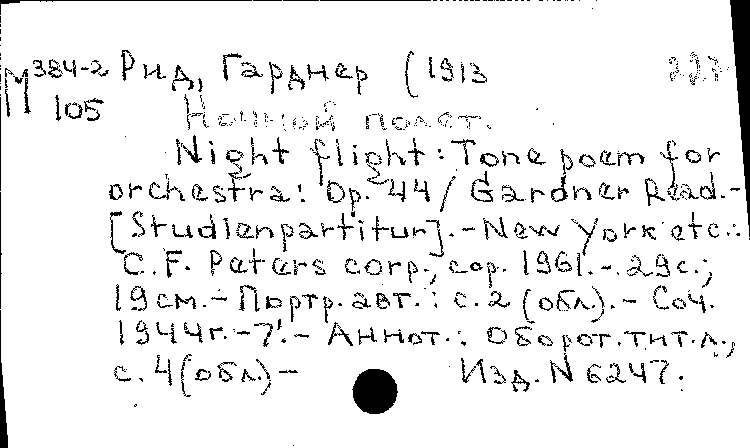 М 384-2 Рид, Гарднер (1913 227
105 Ночной полет.
Night flight: Tone poem for
orchestra: Op. 44 / Gardner Read.-
[Studienpartitur].-New York etc.:
C.F. Peters corp., cop. 1961.-29с.;
19см.-Портр.авт.: с.2 (обл).- Соч.
1944г.-7'.- Аннот.: Оборот.тит.л.,
с.4(обл.)- Изд. N 6247.